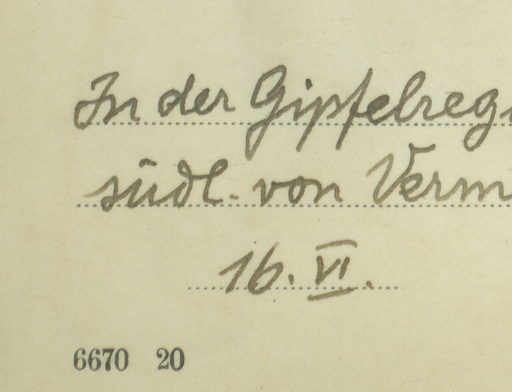 In der Gipfelreg
südl. von Verm
16. VI.
6670 20